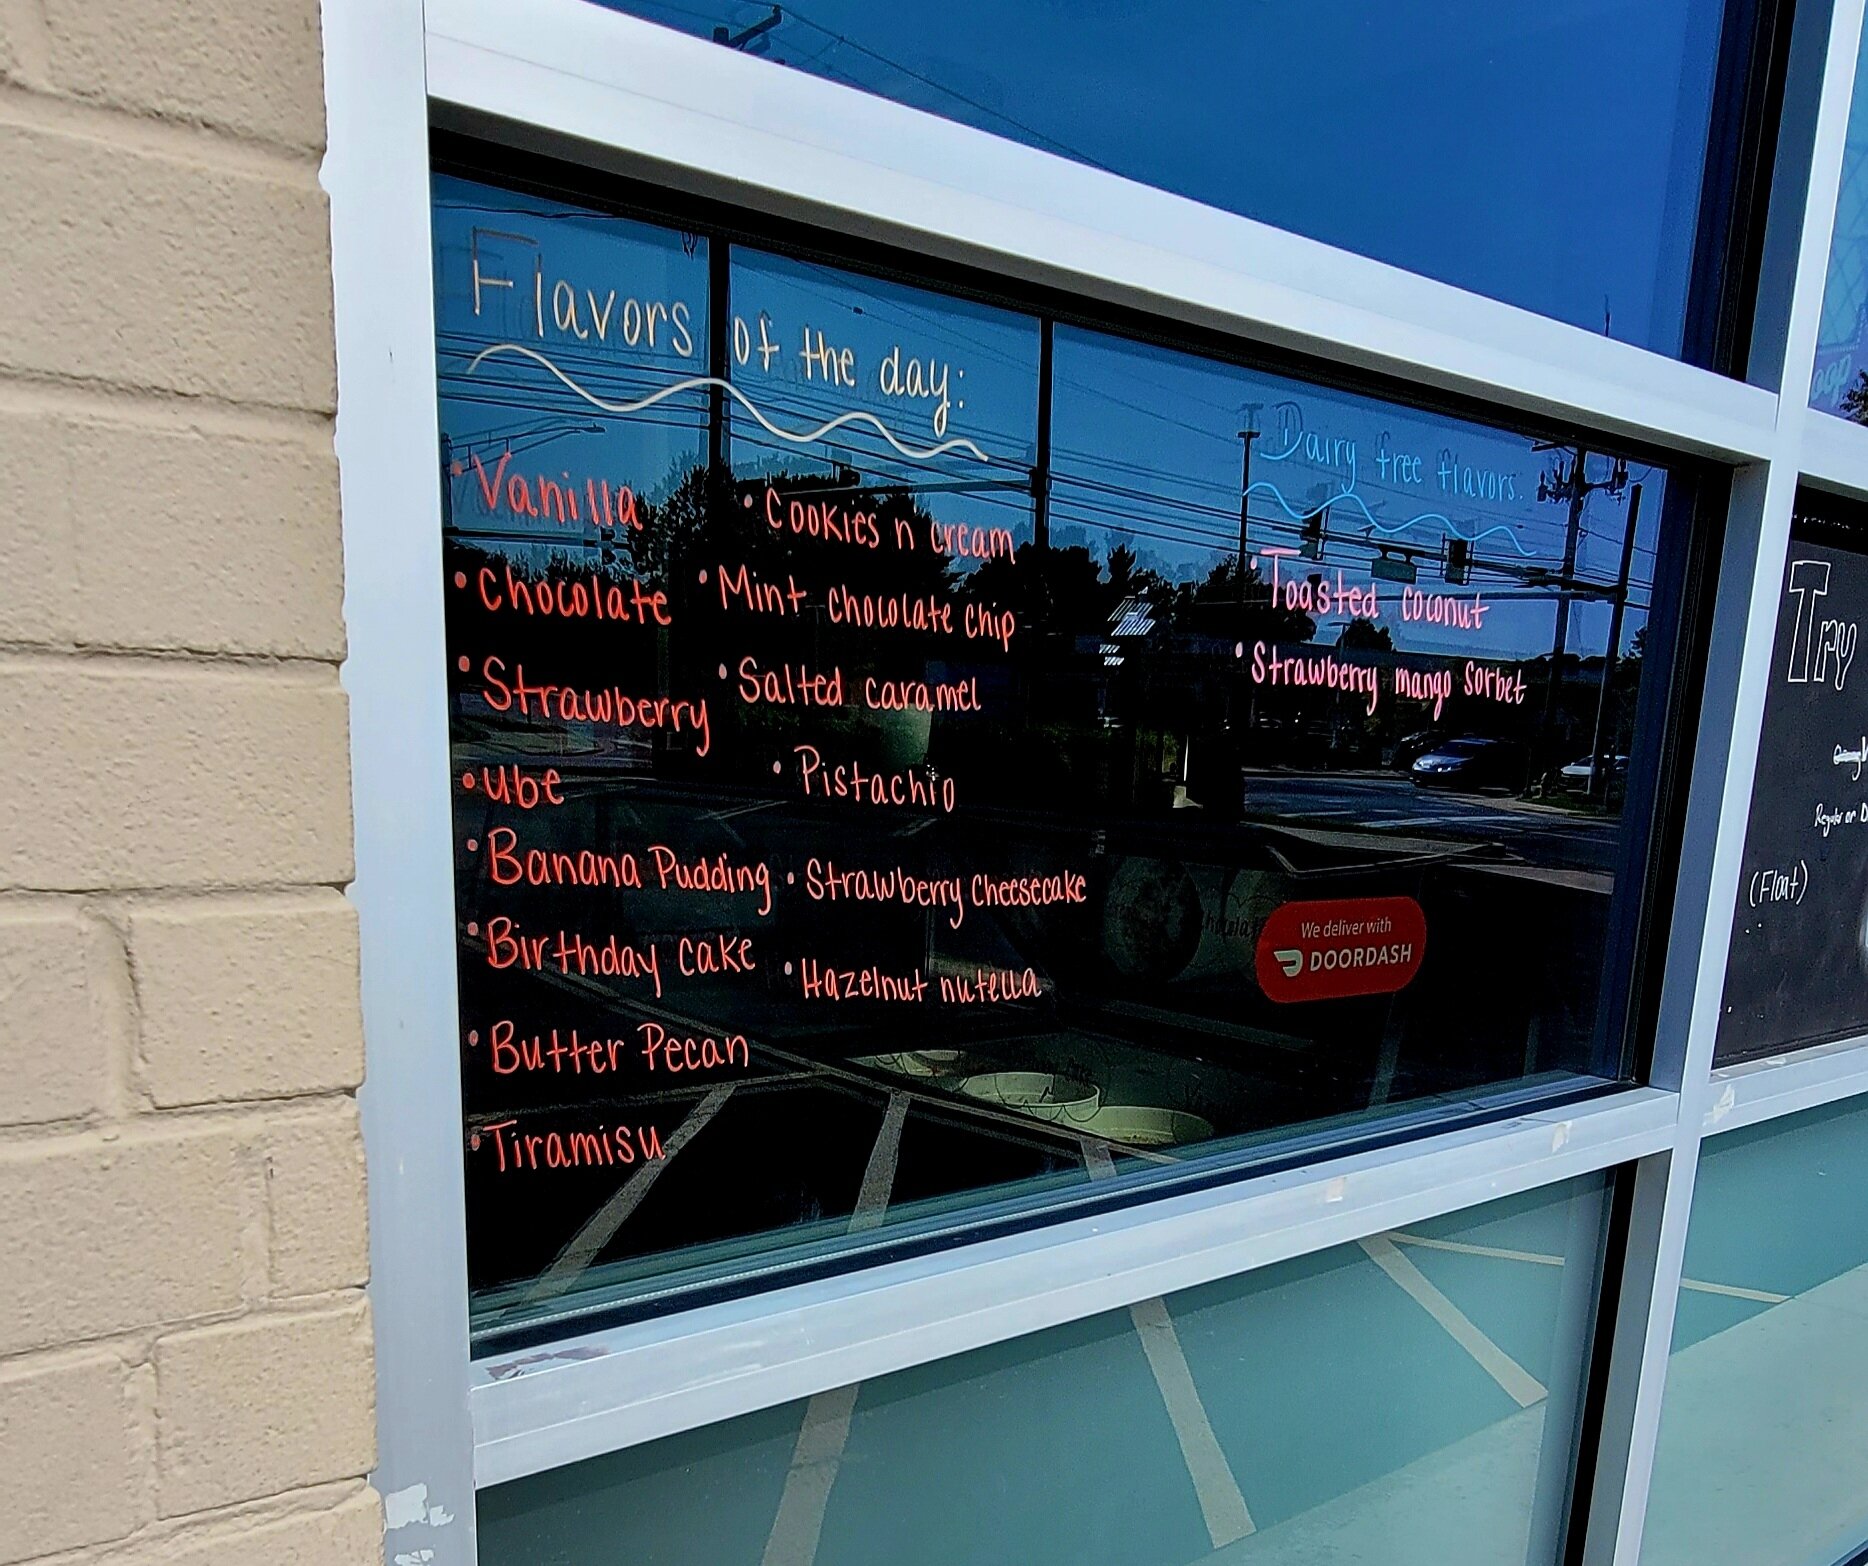 Flavors of the day:
• Vanilla
• Chocolate
• Strawberry
• ube
• Banana Pudding
• Birthday cake
• Butter Pecan
• Tiramisu
• Cookies n cream
• Mint chocolate chip
• Salted caramel
• Pistachio
• Strawberry Cheesecake
• Hazelnut nutella
Dairy free flavors:
• Toasted coconut
• Strawberry mango sorbet
We deliver with
DOORDASH
Try
Regular or D
(Float)